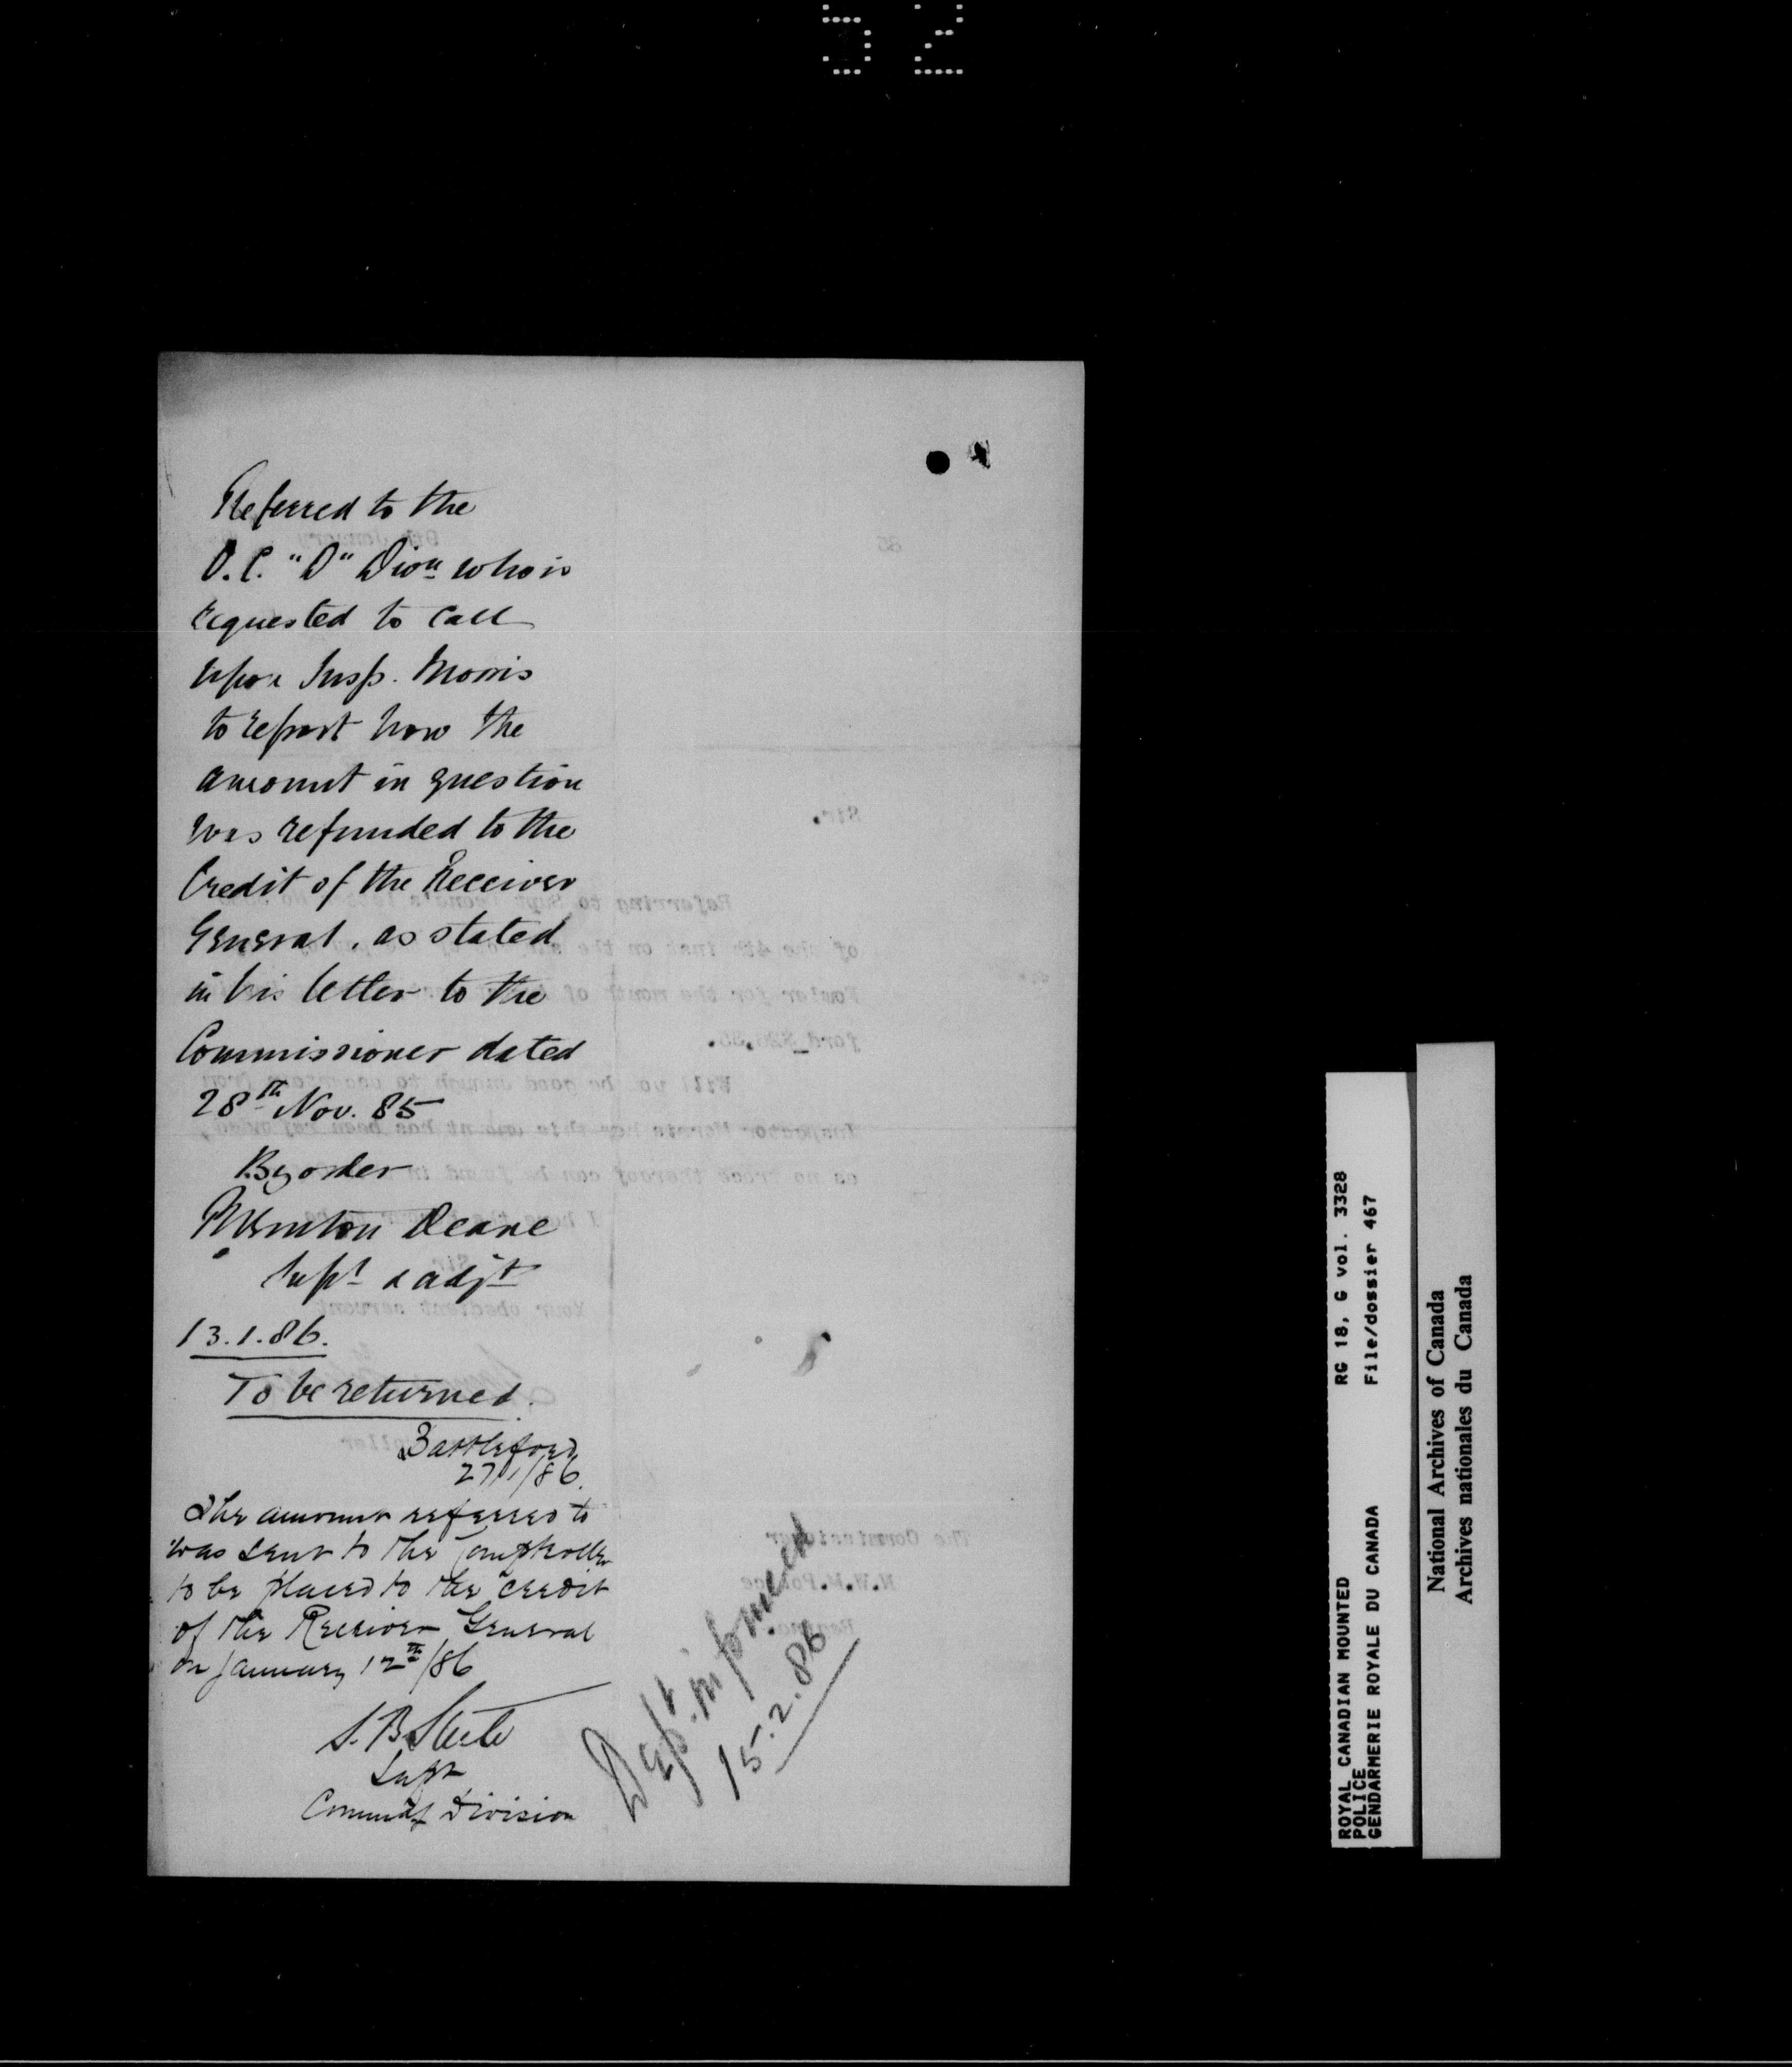 52
Referred to the
O.C. "D" Divn who is
requested to call
upon Insp. Morris
to report how the
amount in question
was refunded to the
Credit of the Receiver
General, as stated
in his letter to the
Commissioner dated
28th Nov. 85
By order
Burton Deane
Supt & adjt
13.1.86.
To be returned.
Battleford
27/1/86.
The amount referred to
was sent to the Comptroller
to be placed to the credit
of the Receiver General
on January 12th/86
S.B. Steele
Supt
Commdg Division
Dept. informed
15.2.86
ROYAL CANADIAN MOUNTED
POLICE
GENDARMERIE ROYALE DU CANADA
RG 18, G vol. 3328
File/dossier 467
National Archives of Canada
Archives nationales du Canada